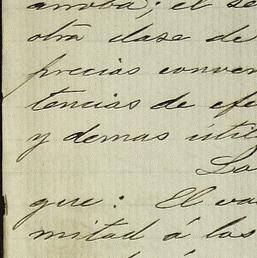 arroba; el se
otra clase de
precios conven
tencias de efe
y demas util
La
que: El va
mitad á los